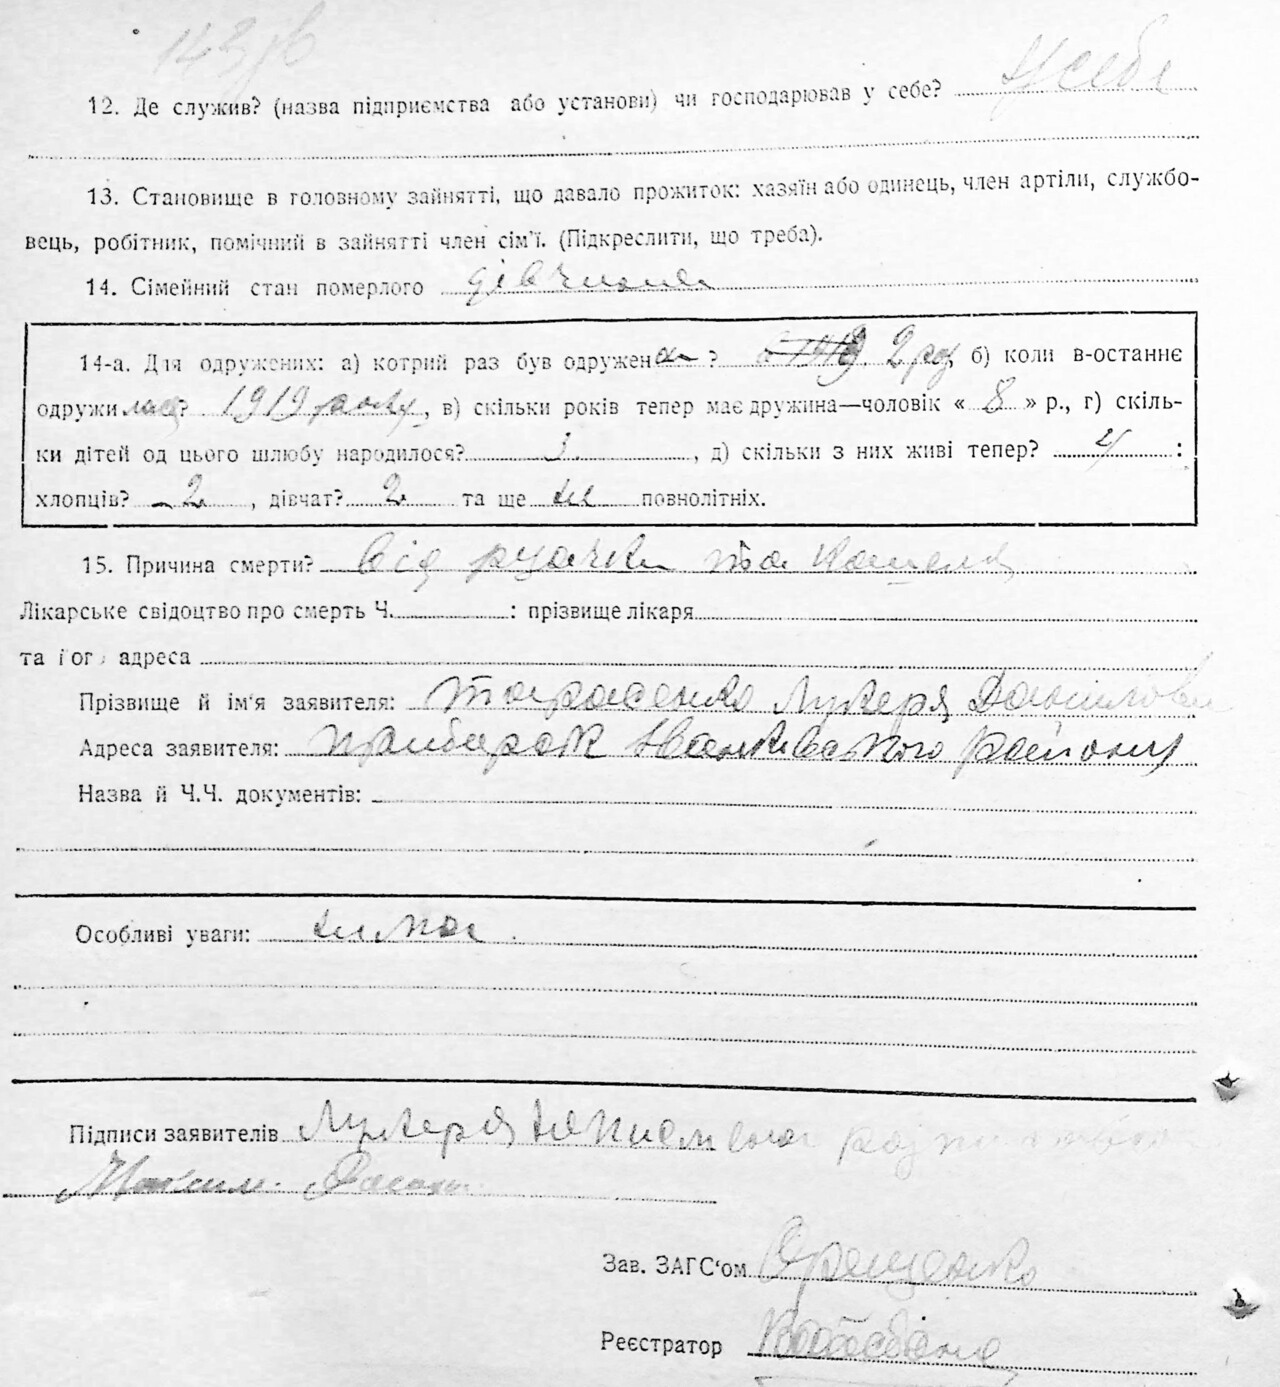 12. Де служив? (назва підприємства або установи) чи господарював у себе? у себе
13. Становище в головному зайнятті, що давало прожиток: хазяїн або одинець, член артіли, службо-
вець, робітник, помічний в зайнятті член сім'ї. (Підкреслити, що треба).
14. Сімейний стан померлого дівчина
14-а. Для одружених: а) котрий раз був одружена? 2 раз б) коли в-останнє
одружилась? 1919 року, в) скільки років тепер має дружина—чоловік « 8 » р., г) скіль-
ки дітей од цього шлюбу народилося? , д) скільки з них живі тепер? 4 :
хлопців? 2 , дівчат? 2 та ще не повнолітніх.
15. Причина смерти? від та кашеля
Лікарське свідоцтво про смерть Ч. : прізвище лікаря
та його адреса
Прізвище й ім'я заявителя: Тарасенко Лукеря Даниловна
Адреса заявителя: Прибирск Іванківського району
Назва й Ч.Ч. документів:
Особливі уваги: нима
Підписи заявителів Лукеря неписменна
Максим
Зав. ЗАГС'ом
Реєстратор